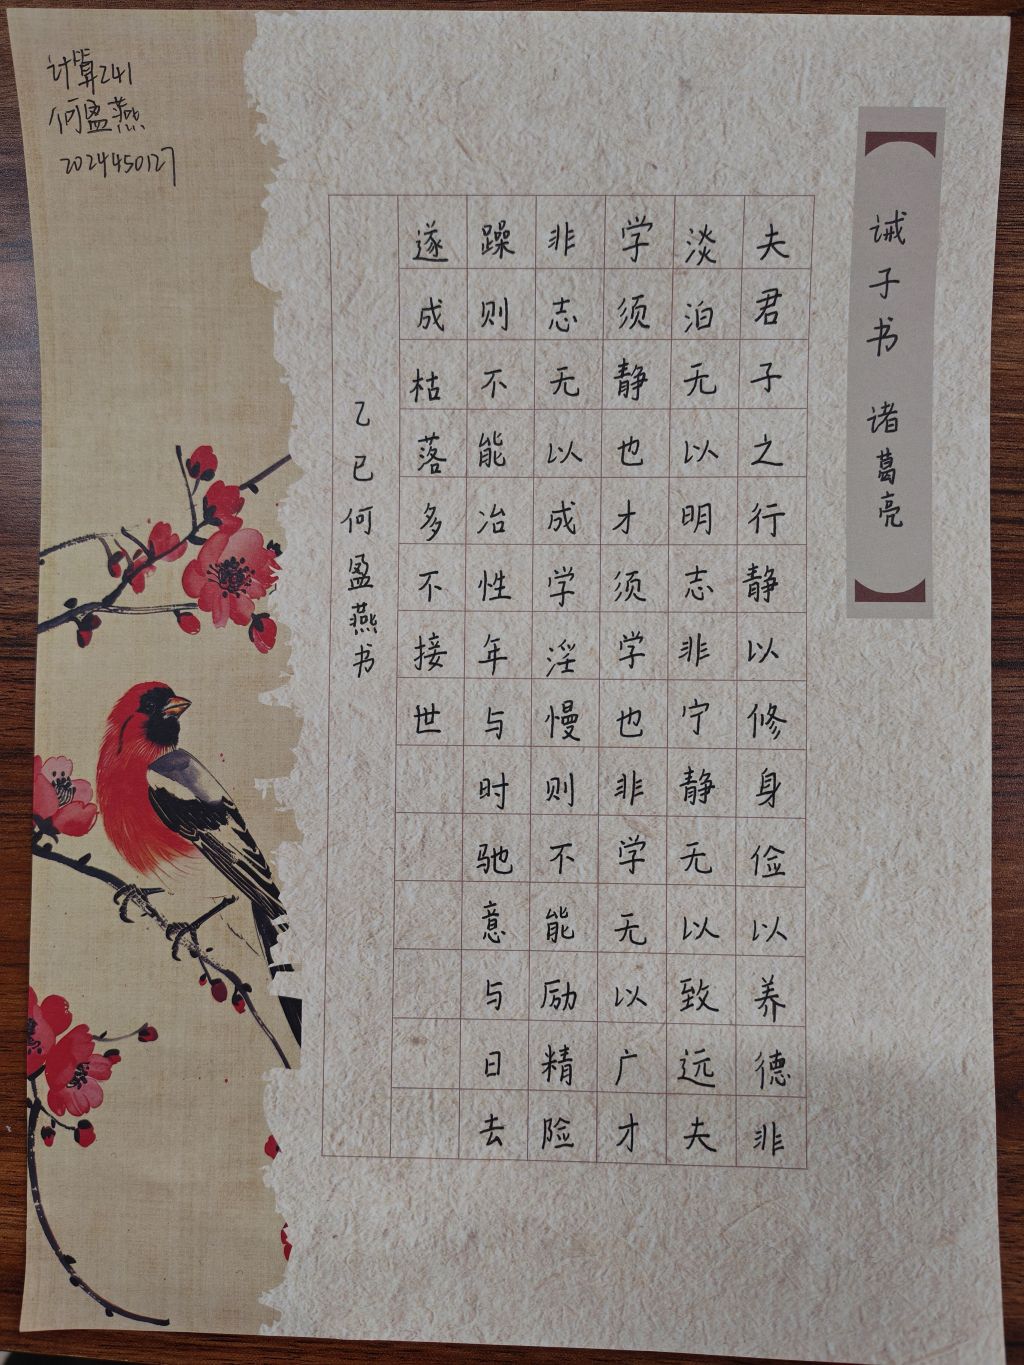 计算241
何盈燕
2024450127
诫子书 诸葛亮
夫君子之行静以修身俭以养德非
淡泊无以明志非宁静无以致远夫
学须静也才须学也非学无以广才
非志无以成学淫慢则不能励精险
躁则不能冶性年与时驰意与日去
遂成枯落多不接世
乙已何盈燕书